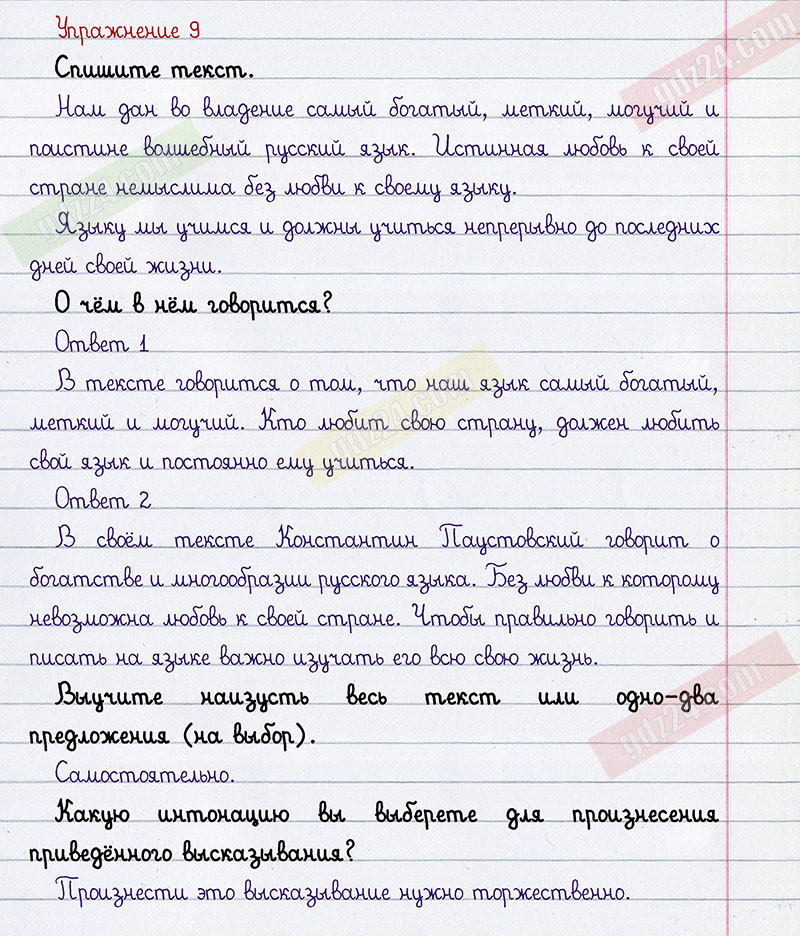 Упражнение 9
Спишите текст.
Нам дан во владение самый богатый, меткий, могучий и
поистине волшебный русский язык. Истинная любовь к своей
стране немыслима без любви к своему языку.
Языку мы учимся и должны учиться непрерывно до последних
дней своей жизни.
О чём в нём говорится?
Ответ 1
В тексте говорится о том, что наш язык самый богатый,
меткий и могучий. Кто любит свою страну, должен любить
свой язык и постоянно ему учиться.
Ответ 2
В своём тексте Константин Паустовский говорит о
богатстве и многообразии русского языка. Без любви к которому
невозможна любовь к своей стране. Чтобы правильно говорить и
писать на языке важно изучать его всю свою жизнь.
Выучите наизусть весь текст или одно-два
предложения (на выбор).
Самостоятельно.
Какую интонацию вы выберете для произнесения
приведённого высказывания?
Произнести это высказывание нужно торжественно.
gdz24.com
gdz24.com
gdz24.com
gdz24.com